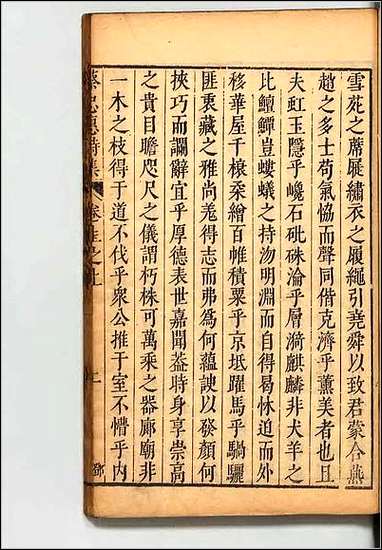 雪苑之蓆屣繡衣之履繩引堯舜以致君蒙合燕
趙之多士苟氣恊而聲同偕克濟乎薫美者也且
夫虹玉隱乎巉石砒硃淪乎層漪麒麟非犬羊之
比鱣鱓豈螻蟻之持沕明淵而自得曷怵迫而外
移華屋千榱乘繪百帷積粟乎京坻躍馬乎騧驪
匪衷藏之雅尚羌得志而弗為何蘊諛以發顏何
挾巧而讕辭宜乎厚德表世嘉聞葢時身享崇高
之貴目瞻咫尺之儀謂朽株可萬乘之器廊廟非
一木之枝得于道不伐乎衆公推于室不懵乎内
蔡忠惠詩集